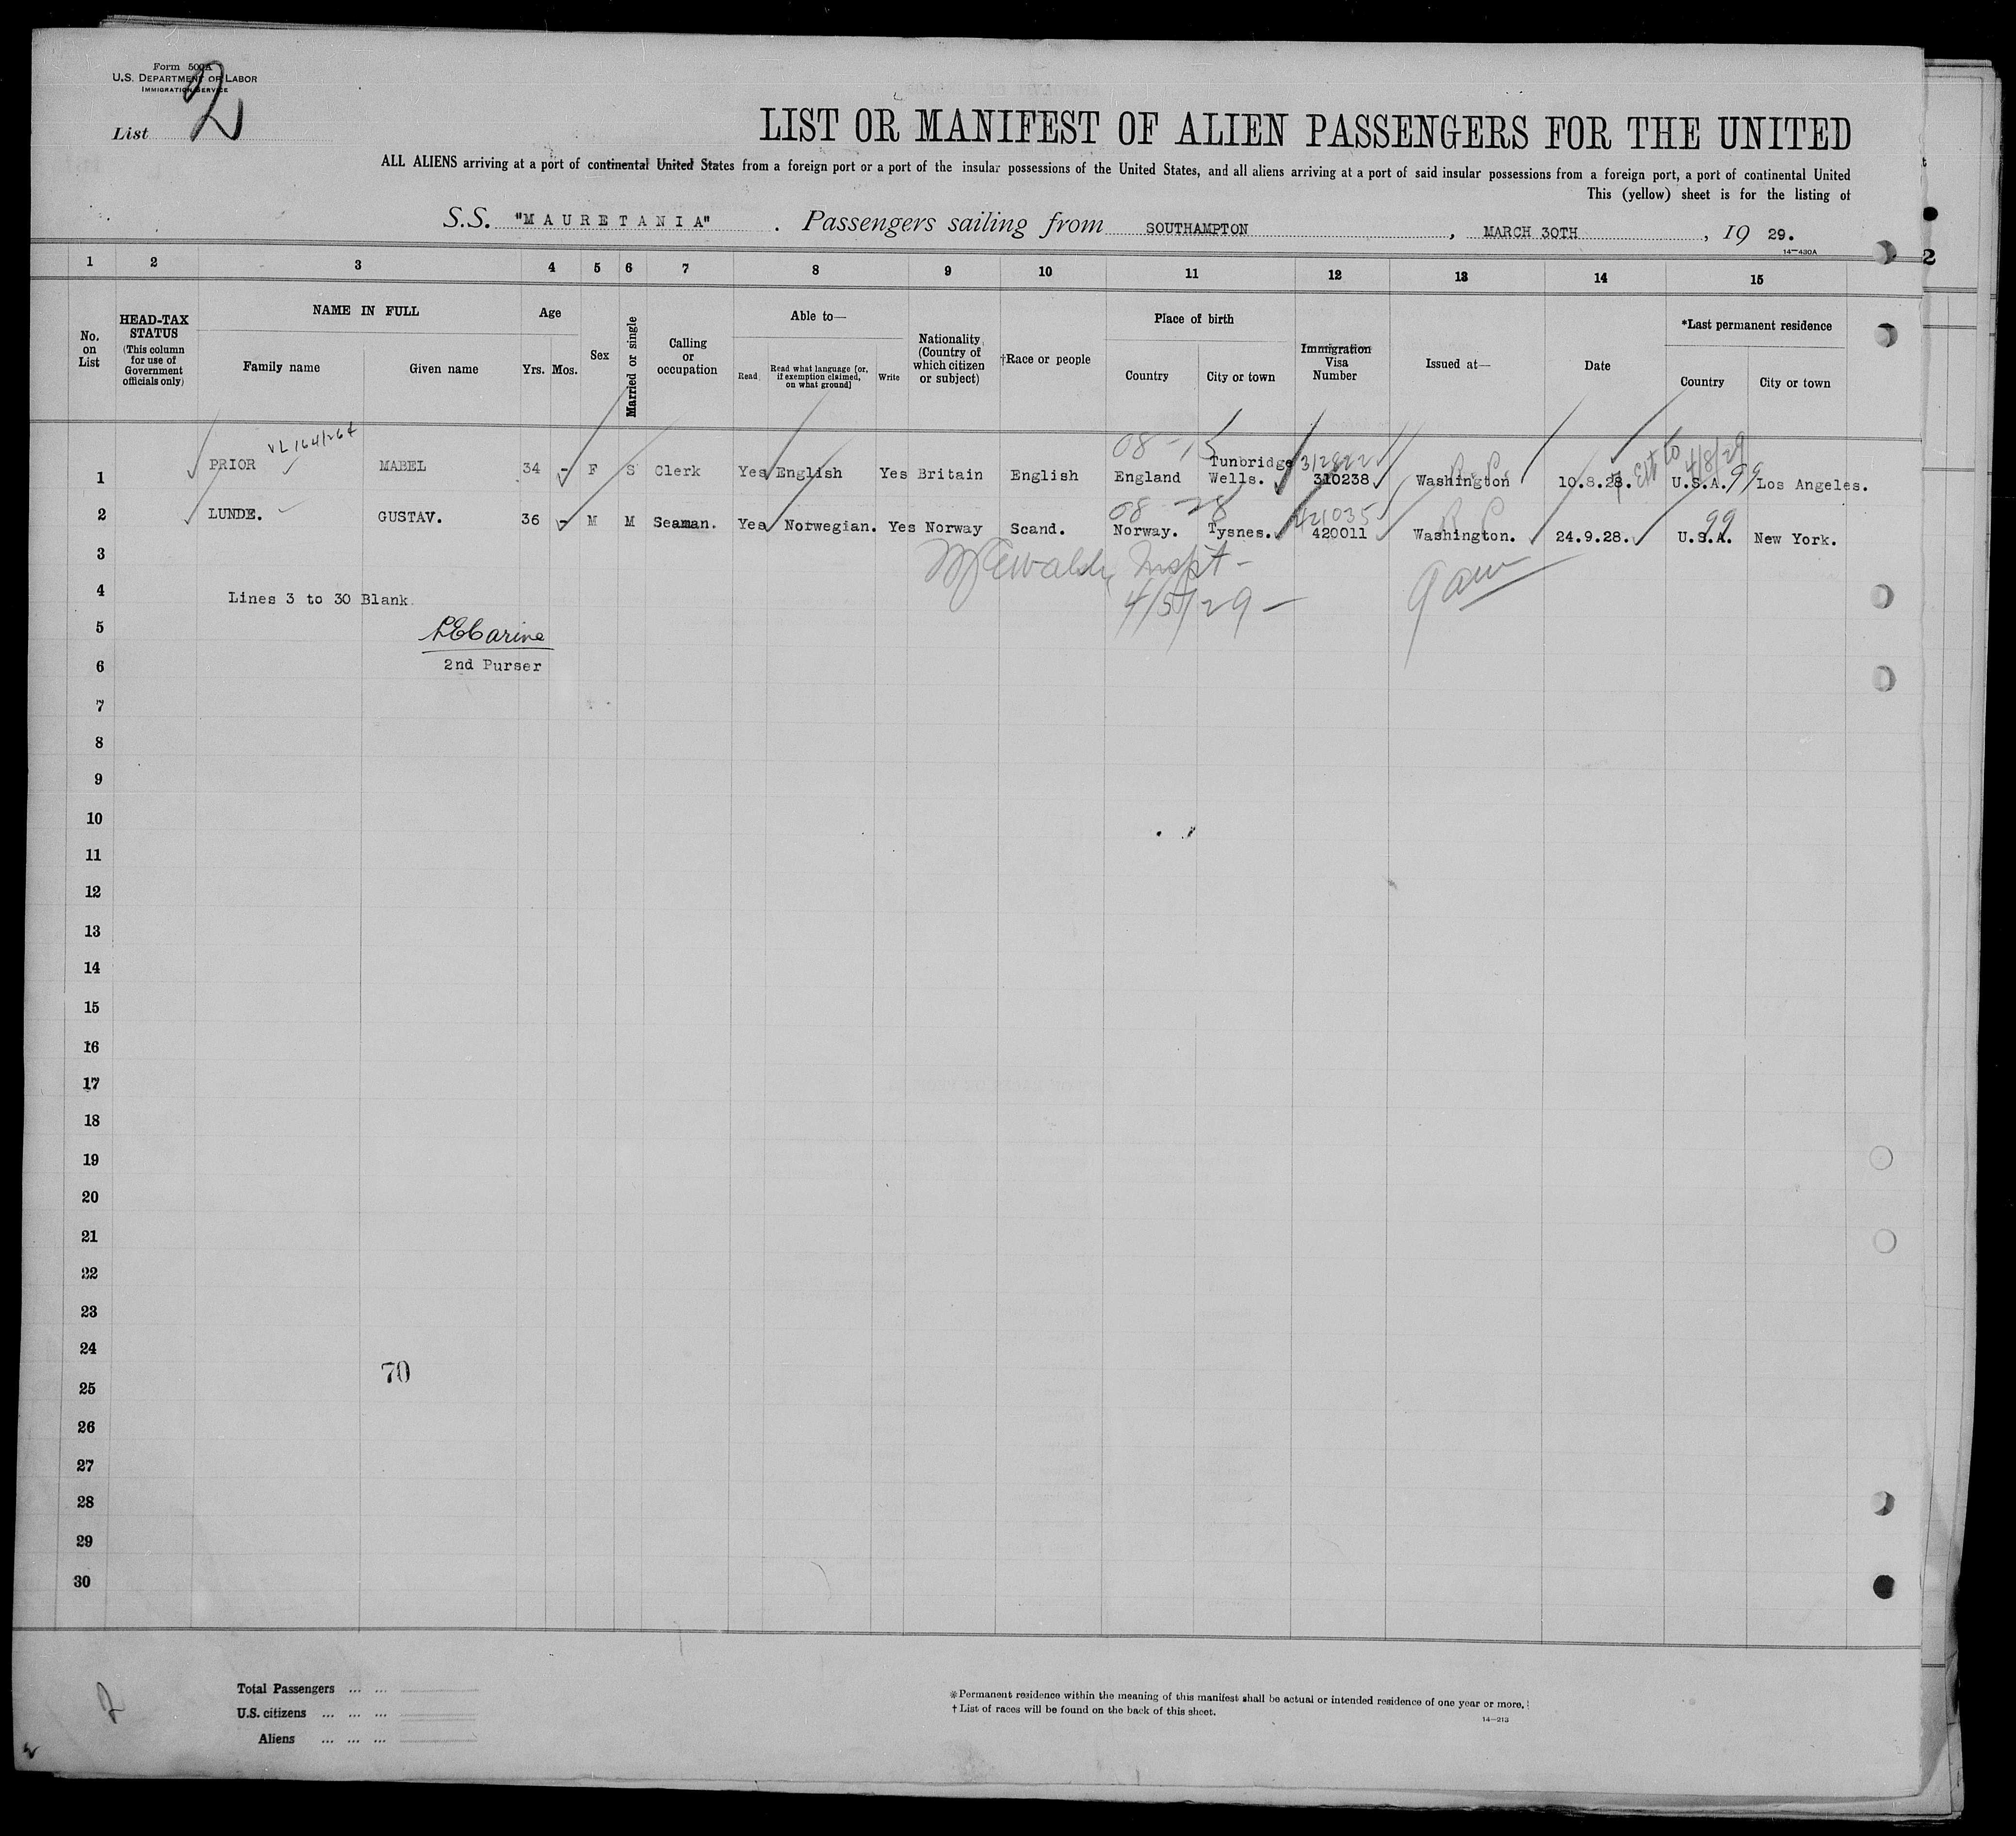 Form 500A
U.S. DEPARTMENT OF LABOR
IMMIGRATION SERVICE
List 2
LIST OR MANIFEST OF ALIEN PASSENGERS FOR THE UNITED
ALL ALIENS arriving at a port of continental United States from a foreign port or a port of the insular possessions of the United States, and all aliens arriving at a port of said insular possessions from a foreign port, a port of continental United
This (yellow) sheet is for the listing of
S.S. "MAURETANIA" . Passengers sailing from SOUTHAMPTON , MARCH 30TH , 19 29.
14—430A
1 2 3 4 5 6 7 8 9 10 11 12 13 14 15
No. on List
HEAD-TAX STATUS (This column for use of Government officials only)
NAME IN FULL
Family name Given name
Age
Yrs. Mos.
Sex
Married or single
Calling or occupation
Able to—
Read Read what language [or, if exemption claimed, on what ground] Write
Nationality (Country of which citizen or subject)
†Race or people
Place of birth
Country City or town
Immigration Visa Number
Issued at—
Date
*Last permanent residence
Country City or town
2
VL 164/264
08-15
4/8/29
1 PRIOR MABEL 34 - F S Clerk Yes English Yes Britain English England Tunbridge Wells. 310238 Washington 10.8.28. U.S.A. 99 Los Angeles.
08-28 421035 99
2 LUNDE. GUSTAV. 36 - M M Seaman. Yes Norwegian. Yes Norway Scand. Norway. Tysnes. 420011 Washington. 24.9.28. U.S.A. New York.
3
Inspt-
4 Lines 3 to 30 Blank
4/5/29-
5
2nd Purser
6
7
8
9
10
11
12
13
14
15
16
17
18
19
20
21
22
23
24
70
25
26
27
28
29
30
2
Total Passengers ... ...
U.S. citizens ... ... ...
Aliens ... ... ...
*Permanent residence within the meaning of this manifest shall be actual or intended residence of one year or more.
† List of races will be found on the back of this sheet.
14—213